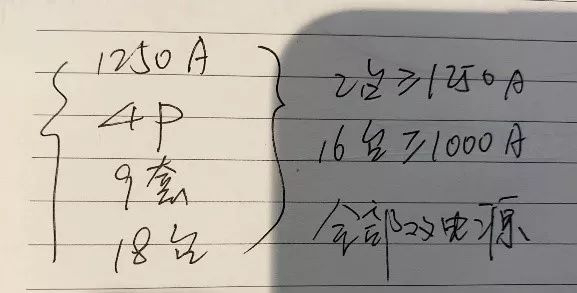 1250A
4P
9套
18台
2台≥1250A
16台≥1000A
全部双电源